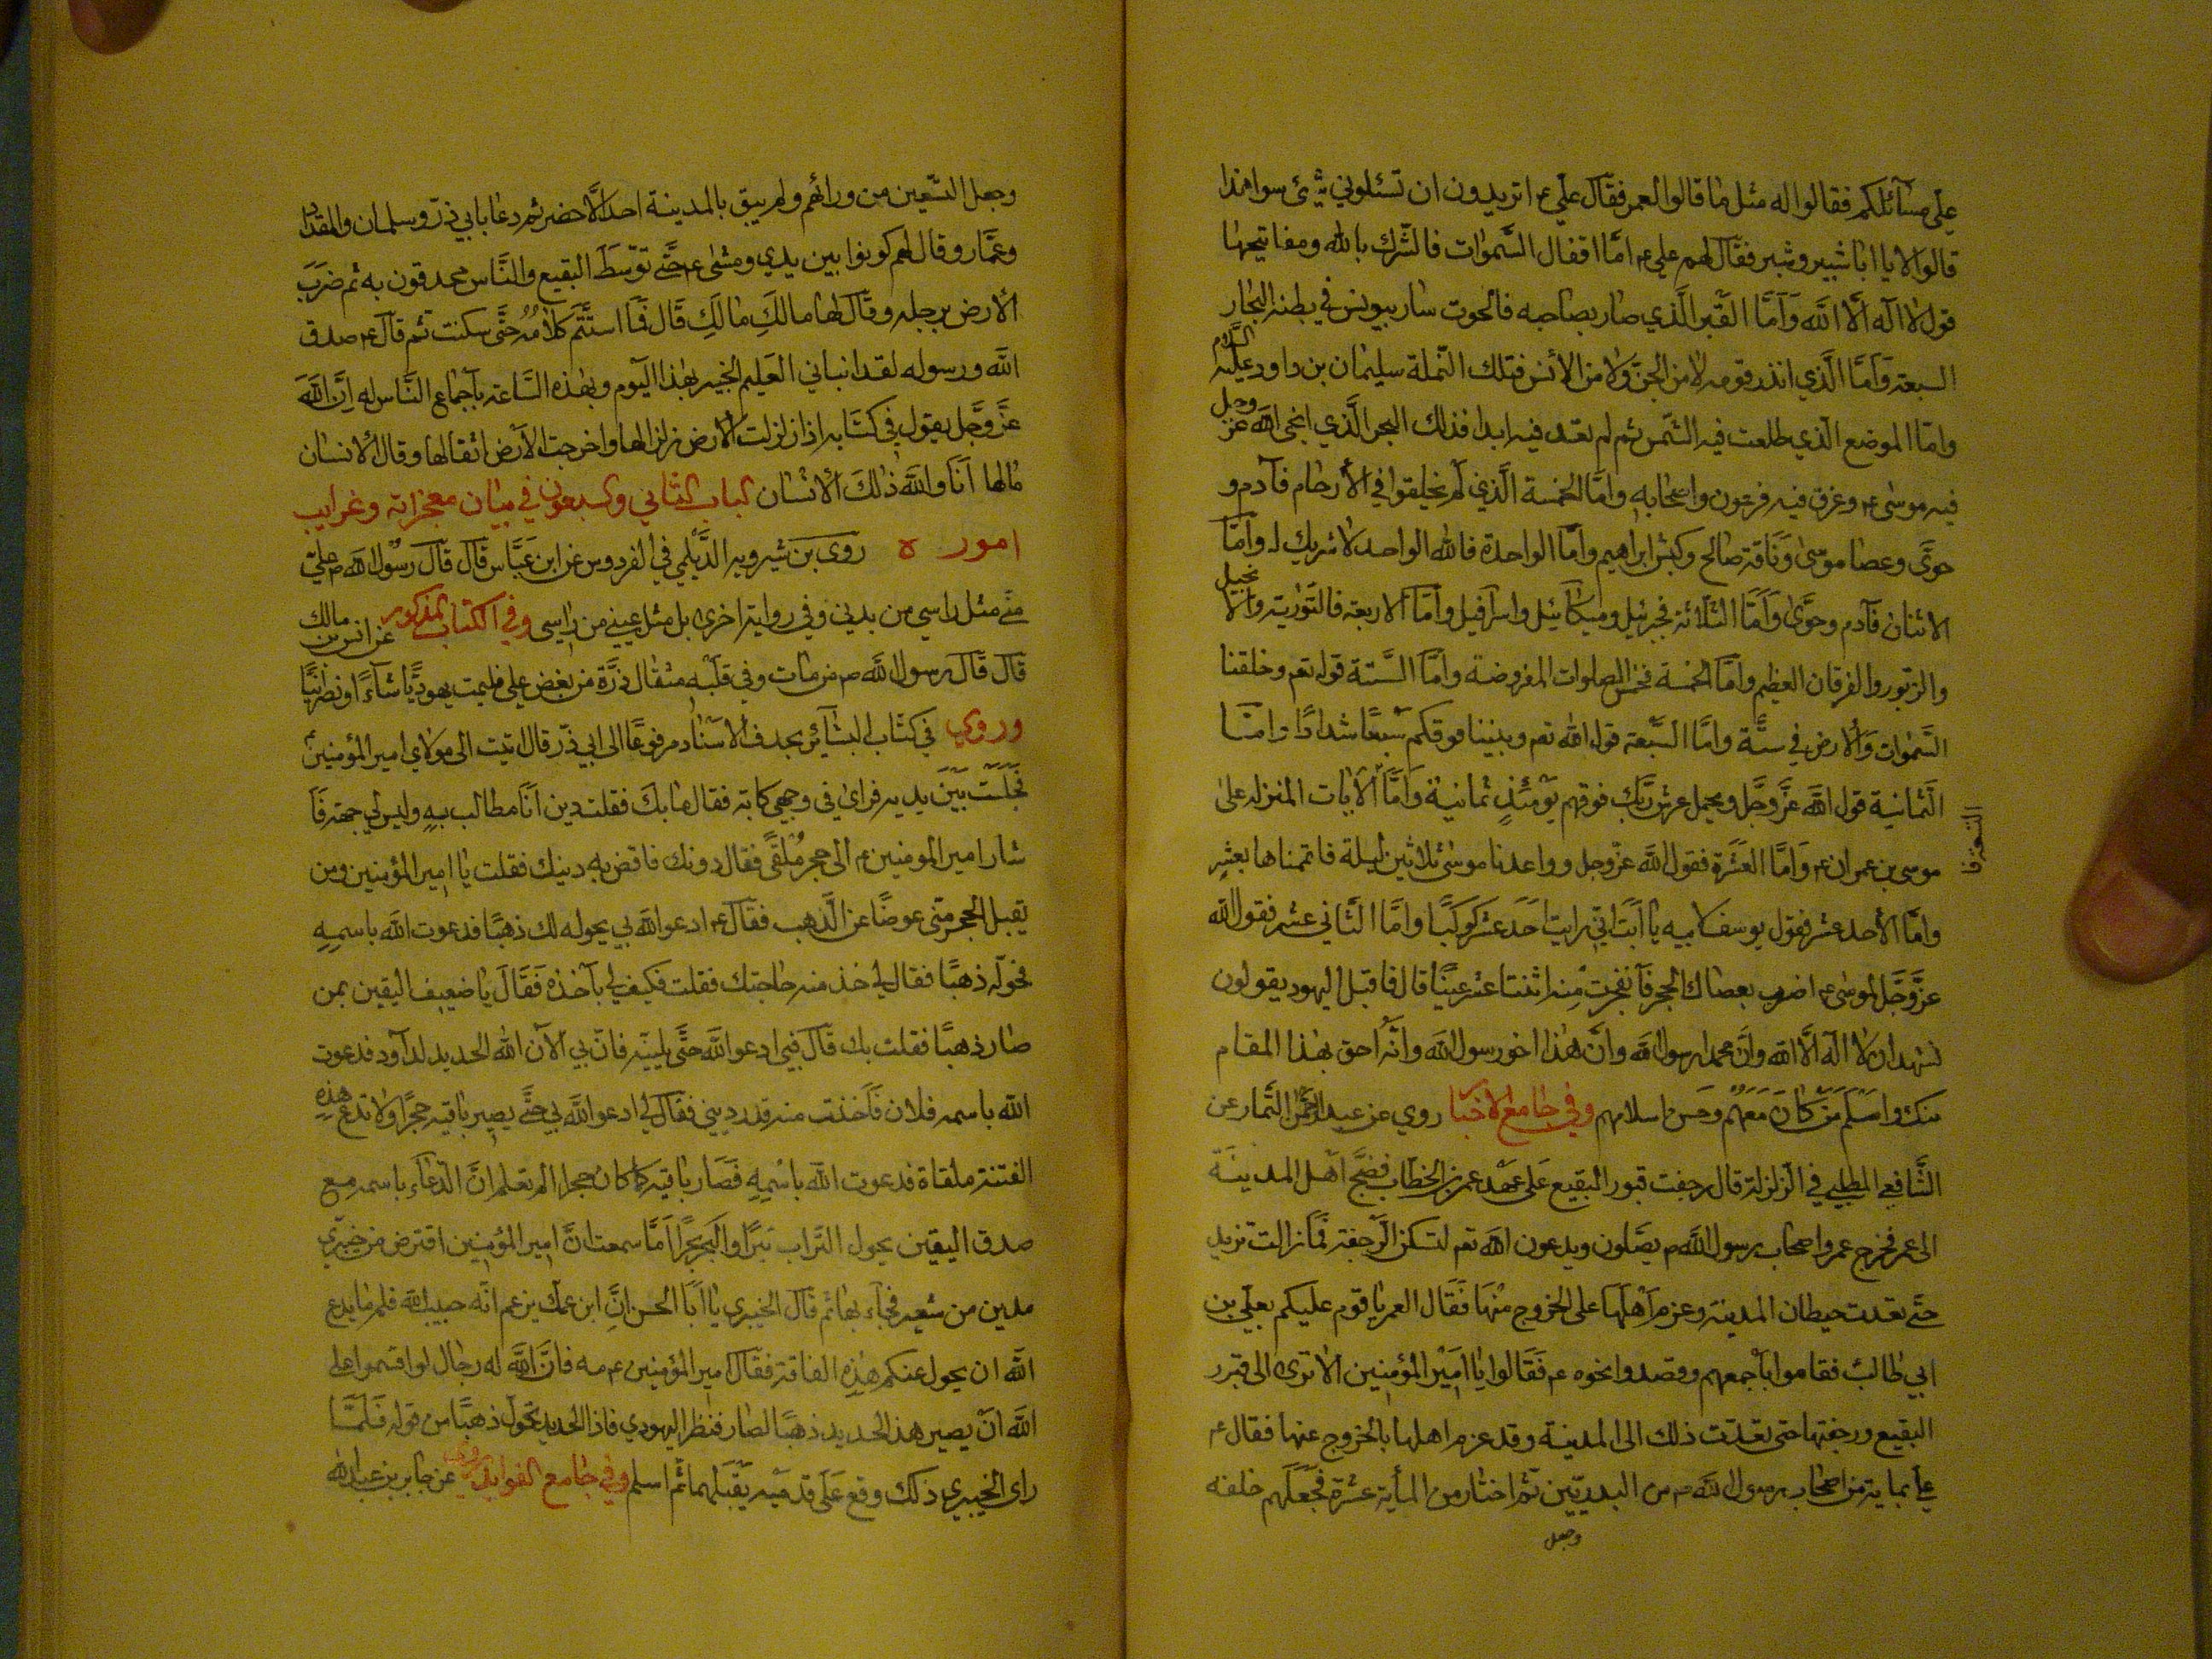 على مسائلكم فقالوا له مثل ما قالوا لعمر فقال علي ع اتريدون ان تسئلوني بشئ سوا هذا
قالوا لا يا ابا شبير وشبر فقال لهم علي ع اما اقفال السموات فالشرك بالله ومفاتيحها
قول لا اله الا الله وَاَمَّا القبر الَّذي صار بصاحبه فالحوت سار بيونس في بطنه البحار
السبعة وَاَمَّا الَّذي انذر قومه لا من الجن وَلا من الأنس فتلك النملة سليمان بن داود عليه السلام
وامّا الموضع الّذي طلعت فيه الشّمس ثم لم تعد فيه ابدا فذلك البحر الَّذي انجى الله عز وجل
فيه موسى ع وغرق فيه فرعون واصحابه وامَّا الخمسة الَّذي لم يخلقوا في الأرحام فآدم و
حوَّى وعصا موسى وَنَاقة صالح وكبش ابراهيم وامّا الواحدة فالله الواحد لا شريك له وامَّا
الاثنان فآدم وحوَّى وَاَمَّا الثلاثة فجبرئيل وميكائيل واسرافيل وامّا الاربعة فالتوراية والانجيل
والزبور والفرقان العظيم وامّا الخمسة فخمس الصلوات المفروضة وامَّا السّتة قوله تعم وخلقنا
السَّموات وَالأرض في ستَّة وامّا السَّبعة قول الله تعم وبنينا فوقكم سَبعًا شدادًا وامَّا
الَّثمانية قول الله عَزَّ وجَّل ويحمل عرش ربّك فوقهم يَومَئذٍ ثمانية وَاَمَّا الآيات المنزله على
موسى بن عمران ع وَامَّا العَشَرَة فقول الله عزّ وجل وواعدنا موسى ثلاثين ليلة فاتممناها بعشر
وامَّا الأحد عشر فقول يوسف لابيه يا اَبَت انّي رايت احَدَ عشَر كوكبًا وامَّا الثّاني عشر فقول الله
عزَّ وجَّل لموسى ع اضرب بعصاك الحجر فَاَنفجرَت مِنه اثنتا عشر عينًا قال فاقبل اليهود يقولون
نشهد ان لا اله الَّا الله وانَّ محمدا رسول الله وانَّ هذا اخو رسول الله وانّه احق بهذا المقام
منك واسَلَمَ مَن كانَ مَعَهُم وحَسن اسلامهم وفي جامع الاخبار روي عن عبد الرحمن التَّمار عن
الشَّافعي المطلبي في الزلزلة قال رجفت قبور البقيع عَلى عَهد عمر بن الخطاب فضجَّ اَهل المدينَة
الى عمر فخرج عمر واصحاب رسول الله ص يصَلّون ويدعون الله تعم لتسكن الرَّجفة فَمَا زالت تزيد
حتَّى تعدت حيطان المدينة وعزم اَهلَهَا على الخروج منهَا فقَال العمر يا قوم عليكم بعلّي بن
ابي طالب فقاموا باجمعهم وقصدوا نحوه ع فَقَالوا يا اَمَير المؤمنين الا ترى الى قبور
البقيع ورجفتها حتى تعدّت ذلك الى المدينة وقد عزم اهلها بالخروج عنها فقال ع
علّي بماية من اصحاب رسول الله ص من البدريّين ثم اختار من المأية عشَرَة فجَعَلَهم خلفه
وجعل
وجعل التسعين من ورائهم ولم يبق بالمدينة احد الَّا حضر ثم دعا بابي ذرّ وسلمان والمقداد
وعمَّار وقال لهم كونوا بين يدي ومشى ع حتَّى توّسَطَ البقيع والنَّاس محدقون به ثم ضرَبَ
الأرض برجله وقال لها مالَكِ مالَكِ قال فَمَا استتَم كلامُهُ حتّى سكنت ثم قال ع صدق
الله ورسوله لقد انباني العَليم الخبير بهَذا اليوم وبهَذه السَّاعة بأجماع النَّاس له اِنَّ الله
عزَّ وجَّل يقول في كتَابه اذا زلزلت الأرض زلزالها واخرجت الأرض اثقالها وقال الأنسان
مالها اَنَا والله ذلك الأنسان الباب الثاني والسبعون في بيان معجزاته وغرايب
اموره روى بن شيرويه الدَّيلمي في الفردوس عن ابن عَبَّاس قال قال رسُول الله ص علي
منّي مثل راسي من بدني وفي رواية اخرى بل مثل عيني من راسي وفي الكتاب المذكور عن انس بن مالك
قال قالَ رسول الله ص من مات وفي قلبه مثقال ذرَّة من بغض علي فليمت يهوديًّا شاءَ او نصرانيًّا
وروي في كتاب البشائر بحذف الأسناد مرفوعًا الى ابي ذر قال اتيت الى مولاي امير المؤمنين
فجَلَستُ بَينَ يديه فراى في وجهي كابة فقال ما بك فقلت دين اَنَا مطالب بهِ وليس لي جهة فَاَ
شار امير المومنين ع الى حجر مُلقًى فقال دونك فاقض به دينك فقلت يا امير المؤمنين ومن
يقبل الحجر منّي عوضًا عن الَّذهب فقال ع ادعو الله بي يحوله لك ذهبًا فدعوت الله باسمِهِ
فحوله ذهبًا فقال لي خذ منه حاجتك فقلت فكيف لي بأخذه فَقَالَ يا ضعيف اليقين بمن
صار ذهبًا فقلت بك قال فبي ادعو الله حتَّى يلينه فانّ بي الآن الله الحديد لداود فدعوت
الله باسمه فلان فَاَخذت منه قدر ديني فقال لي ادعو الله بي حتَّى يصير باقيه حجرًا ولا تدع هذه
الفتنة ملقاة فدعوت الله باسْمِهِ فَصَار باقيه كما كان حجرا الم تعلم انَّ الدّعَاءَ باسمه مع
صدق اليقين يحول التَّراب تبرًا والحجر بَحرًا اَمَّا سمعت انَّ امير المؤمنين اقترض من خيبري
مدين من شعير فجاءَ بها ثم قال الخيبري يا اَبَا الحسن انَّ ابن عمك يزعم انَّه حبيب الله فلم ما يدع
الله ان يحول عنكم هذِه الفاقة فقال امير المؤمنين ع مه فانَّ الله له رجال لو اقسموا على
الله انْ يصير هذ الحديد ذهبًا لصار فنظر اليهودي فاذا الحديد تحول ذهبًا من قوله فلمَّا
راى الخيبري ذلك وقع عَلى قدمَيه يُقبّلهما ثم اسلم وفي جامع الفوايد عن جابر بن عبد الله